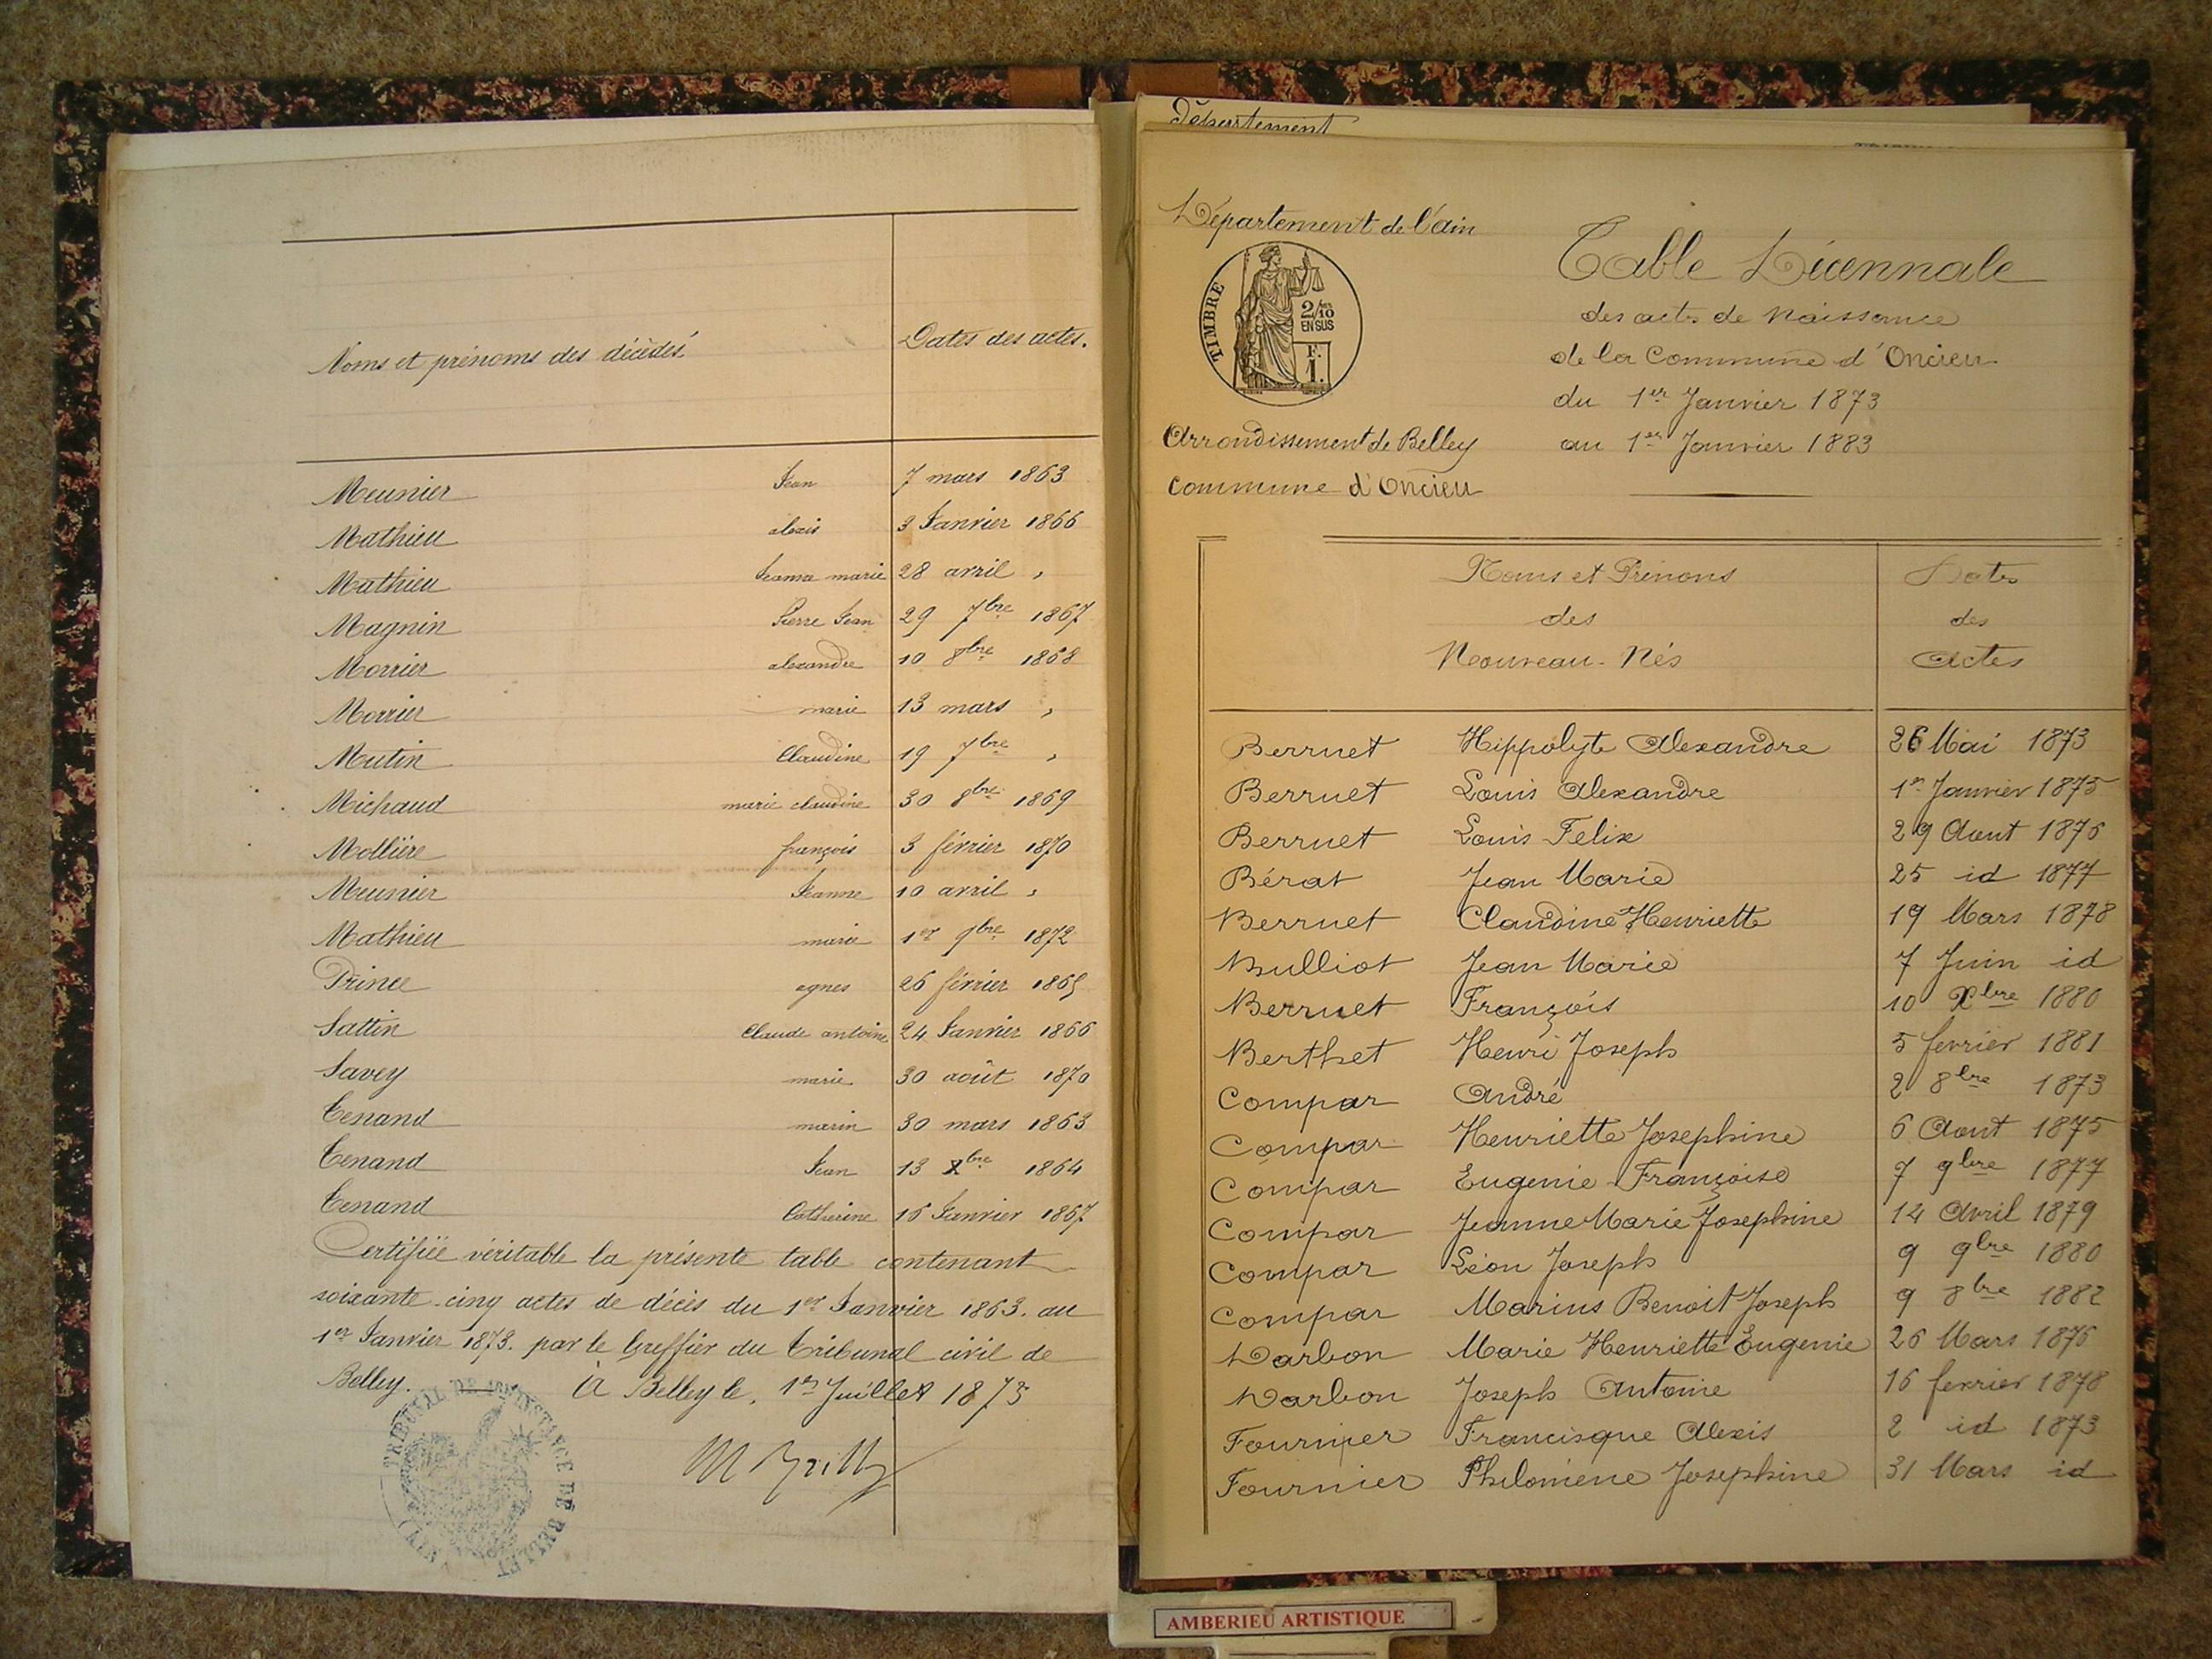 Noms et prénoms des décédés
Dates des actes.
Meunier Jean 7 mars 1863
Mathieu alexis 3 Janvier 1866
Mathieu Jeanne marie 28 avril "
Magnin Pierre Jean 29 7bre 1867
Morrier alexandre 10 8bre 1868
Morrier marie 13 mars "
Mutin Claudine 19 7bre "
Michaud marie claudine 30 8bre 1869
Mollière françois 3 février 1870
Meunier Jeanne 10 avril "
Mathieu marie 1er 9bre 1872
Prince agnes 26 février 1865
Sattin Claude antoine 24 Janvier 1866
Savey marie 30 août 1870
Tenand marin 30 mars 1863
Tenand Jean 13 Xbre 1864
Tenand Catherine 16 Janvier 1867
Certifiée véritable la présente table contenant
soixante-cinq actes de décès du 1er Janvier 1863. au
1er Janvier 1873. par le Greffier du Tribunal civil de
Belley. A Belley le, 1er Juillet 1873
TRIBUNAL DE 1ère INSTANCE DE BELLEY (AIN)
Département
Département de l'ain
TIMBRE
2/10
EN SUS
F.
1.
Arrondissement de Belley
commune d'Oncieu
Table Décennale
des actes de Naissance
de la Commune d'Oncieu
du 1er Janvier 1873
au 1er Janvier 1883
Noms et Prénons
des
Nouveau-Nés
Dates
des
Actes
Berruet Hippolyte Alexandre 26 Mai 1873
Berruet Louis Alexandre 1er Janvier 1875
Berruet Louis Felix 29 Aout 1876
Bérat Jean Marie 25 id 1877
Berruet Claudine Henriette 19 Mars 1878
Bulliot Jean Marie 7 Juin id
Berruet François 10 Xbre 1880
Berthet Henri Joseph 5 fevrier 1881
Compar André 2 8bre 1873
Compar Henriette Josephine 6 Aout 1875
Compar Eugenie Françoise 7 9bre 1877
Compar Jeanne Marie Josephine 14 Avril 1879
Compar Léon Joseph 9 9bre 1880
Compar Marius Benoit Joseph 9 8bre 1882
Darbon Marie Henriette Eugenie 26 Mars 1876
Darbon Joseph Antoine 16 fevrier 1878
Fournier Francisque Alexis 2 id 1873
Fournier Philomène Josephine 31 Mars id
AMBERIEU ARTISTIQUE